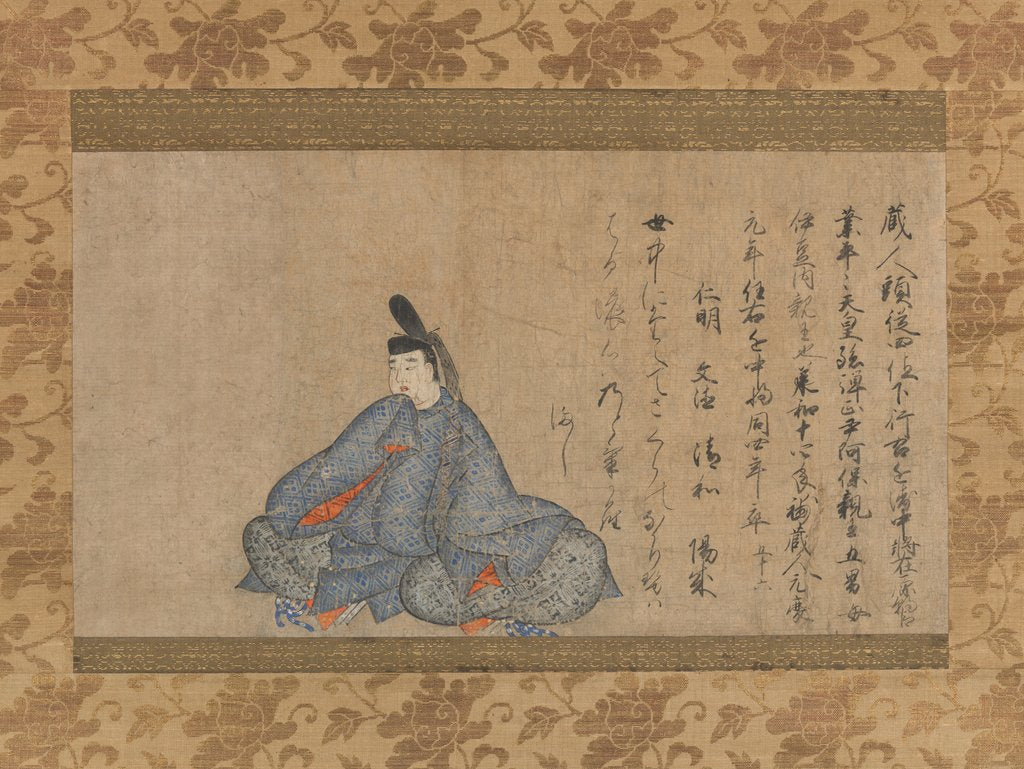 蔵人頭従四位下行右近衛中将在原朝臣
業平〻天皇孫弾正尹阿保親王五男母
伊豆内親王也承和十四年補蔵人元慶
元年任右近中将同四年卒 五十六
仁明 文徳 清和 陽成
世中にたえてさくらのなかりせは
はるの心のとけから
まし